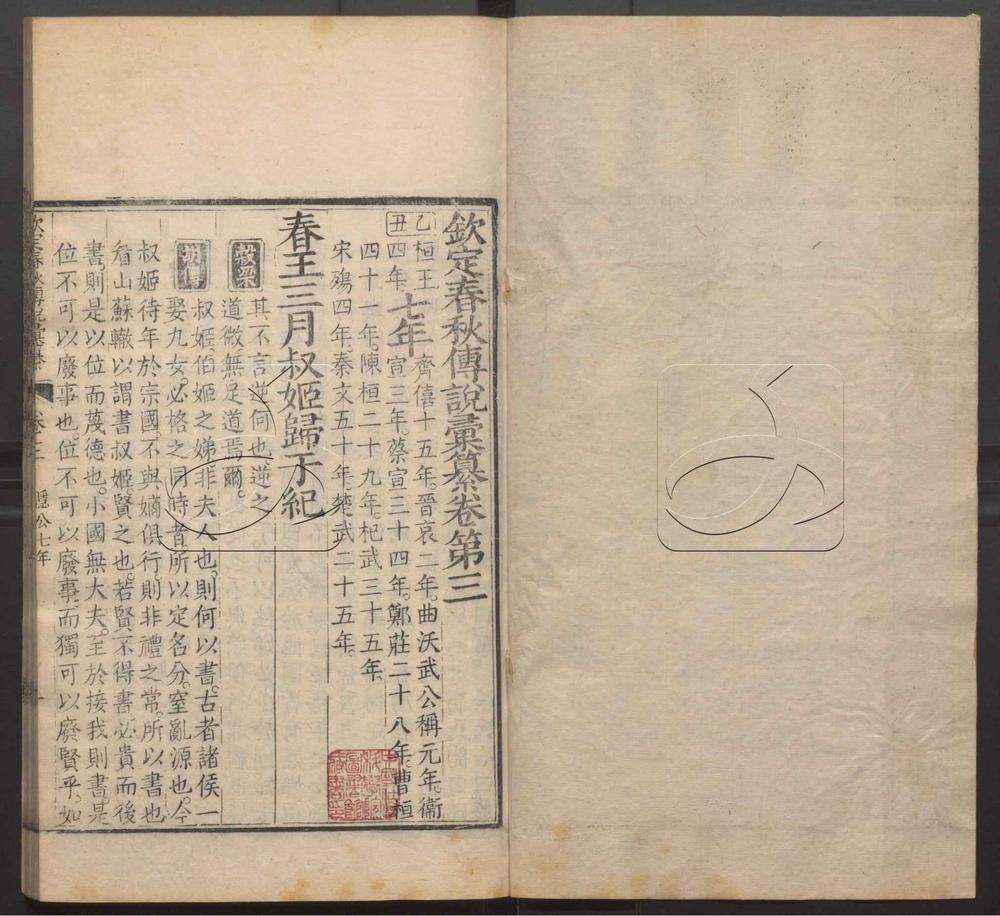 欽定春秋傳說彙纂卷第三
乙丑
桓王四年
七年
齊僖十五年。晉哀二年。曲沃武公稱元年。衞
宣三年。蔡宣三十四年。鄭莊二十八年。曹桓
四十一年。陳桓二十九年。杞武三十五年。
宋殤四年。秦文五十年。楚武二十五年。
春王三月叔姬歸于紀
穀梁
其不言逆何也逆之
道微無足道焉爾。
胡傳
叔姬。伯姬之娣。非夫人也。則何以書。古者諸侯一
娶九女。必格之同時者。所以定名分。窒亂源也。今
叔姬待年於宗國。不與嫡俱行。則非禮之常。所以書也。
眉山蘇轍以謂書叔姬。賢之也。若賢不得書。必貴而後
書。則是以位而蔑德也。小國無大夫。至於接我則書。是
位不可以廢事也。位不可以廢事。而獨可以廢賢乎。如
欽定春秋傳說彙纂
卷三
隱公七年
一